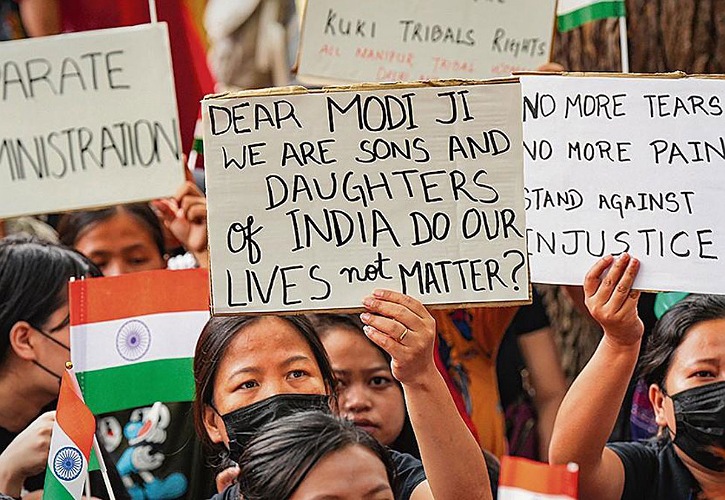 PARATE
MINISTRATION
KUKI TRIBALS RIGHTS
ALL MANIPUR TRIBAL
DEAR MODI JI
WE ARE SONS AND
DAUGHTERS
of INDIA DO OUR
LIVES not MATTER?
NO MORE TEARS
NO MORE PAIN
STAND AGAINST
INJUSTICE